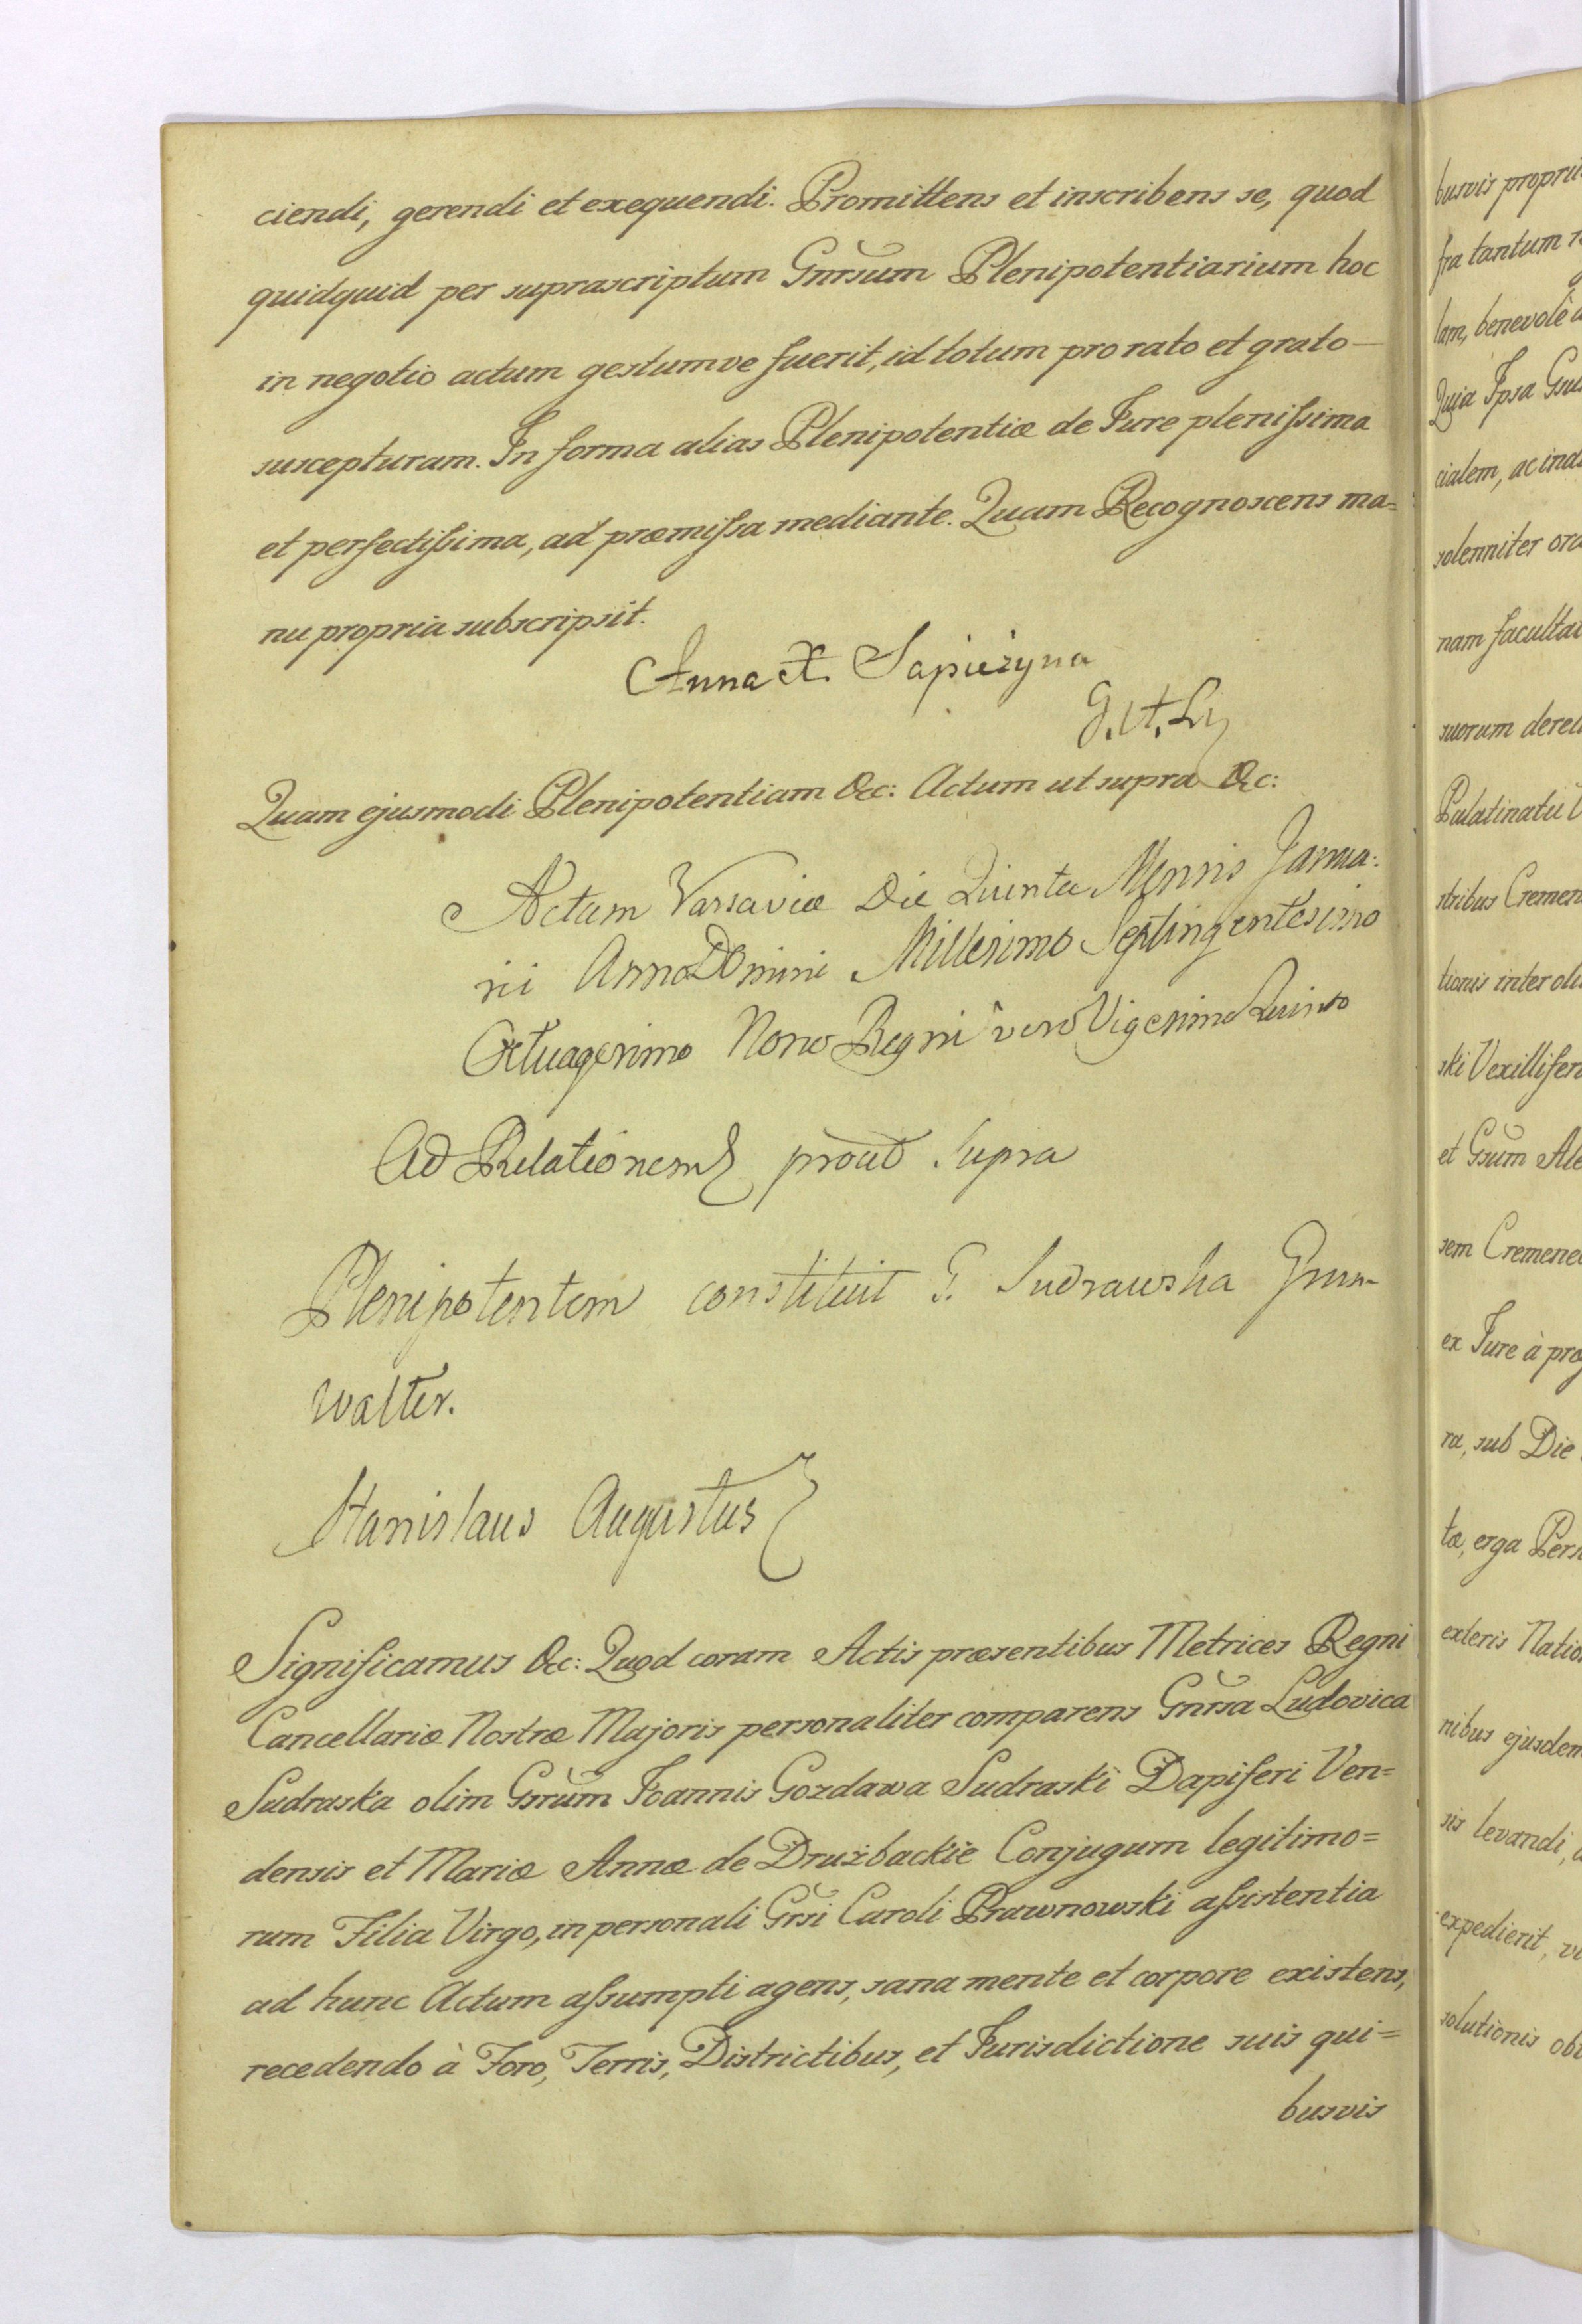 ciendi, gerendi et exequendi. Promittens et inscribens se, quod
quidquid per suprascriptum Gnrsum Plenipotentiarium hoc
in negotio actum gestumve fuerit, id totum pro rato et grato —
suscepturam. In forma alias Plenipotentiæ de Jure plenissima
et perfectissima, ad præmissa mediante. Quam Recognoscens ma=
nu propria subscripsit.
Anna X. Sapieżyna
Quam ejusmodi Plenipotentiam &c: Actum ut supra &c:
Actum Varsaviæ Die Quinta Mensis Janua:
rii Anno Domini Millesimo Septingentesimo
Octuagesimo Nono Regni vero Vigesimo Quinto
Ad Relationem prout supra
Plenipotentem constituit G. Sudrawska Gnrm
Walter.
Stanislaus Augustus
Significamus &c: Quod coram Actis præsentibus Metrices Regni
Cancellariæ Nostræ Majoris personaliter comparens Gnrsa Ludovica
Sudraska olim Gsrum Joannis Gozdawa Sudraski Dapiferi Ven=
densis et Mariæ Annæ de Drużbackie Conjugum legitimo=
rum Filia Virgo, in personali Grsi Caroli Prawnowski assistentia
ad hunc Actum assumpti agens, sana mente et corpore existens,
recedendo à Foro, Terris, Districtibus, et Jurisdictione suis qui=
busvis
busvis propri
fra tantum
lam, benevolè
Quia Ipsa
cialem, ac ind
solenniter ora
nam facultat
suorum dereli
Palatinatu
stribus Cremen
tionis inter oli
ski Vexillifer
et Gsum Ale
sem Cremene
ex Jure à præ
ra, sub Die
tæ, erga Pers
exteris Natio
nibus ejusdem
sis levandi,
expedierit, v
solutionis ob